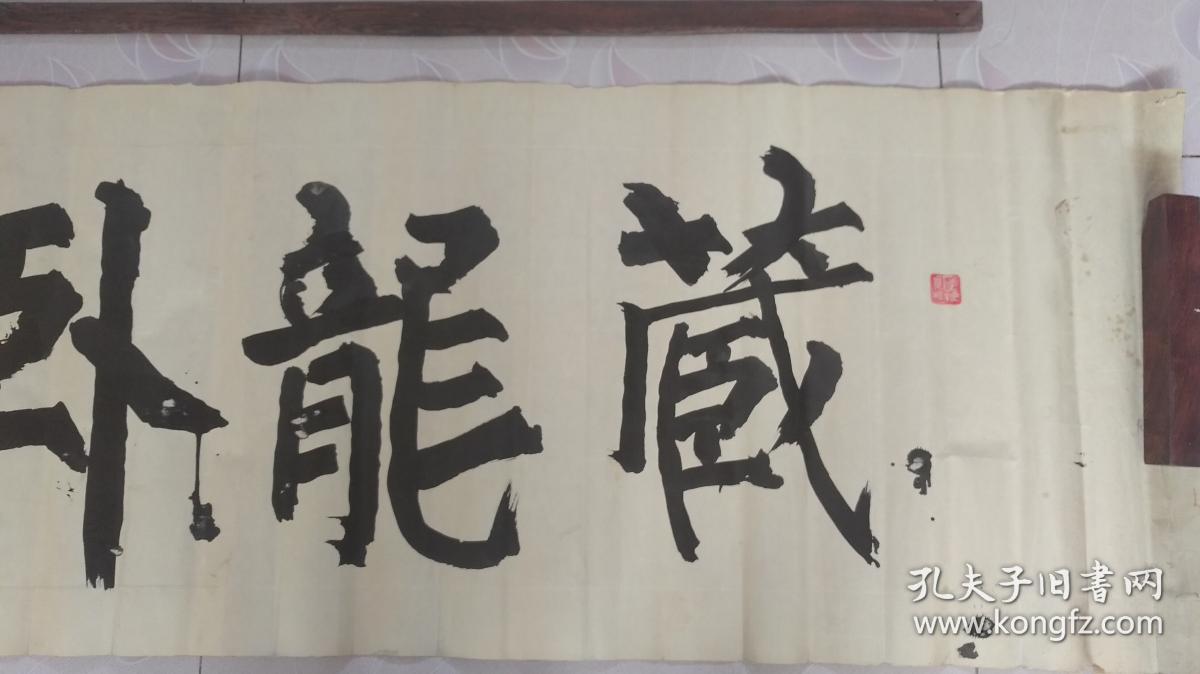 藏龍卧
孔夫子旧書网
www.kongfz.com